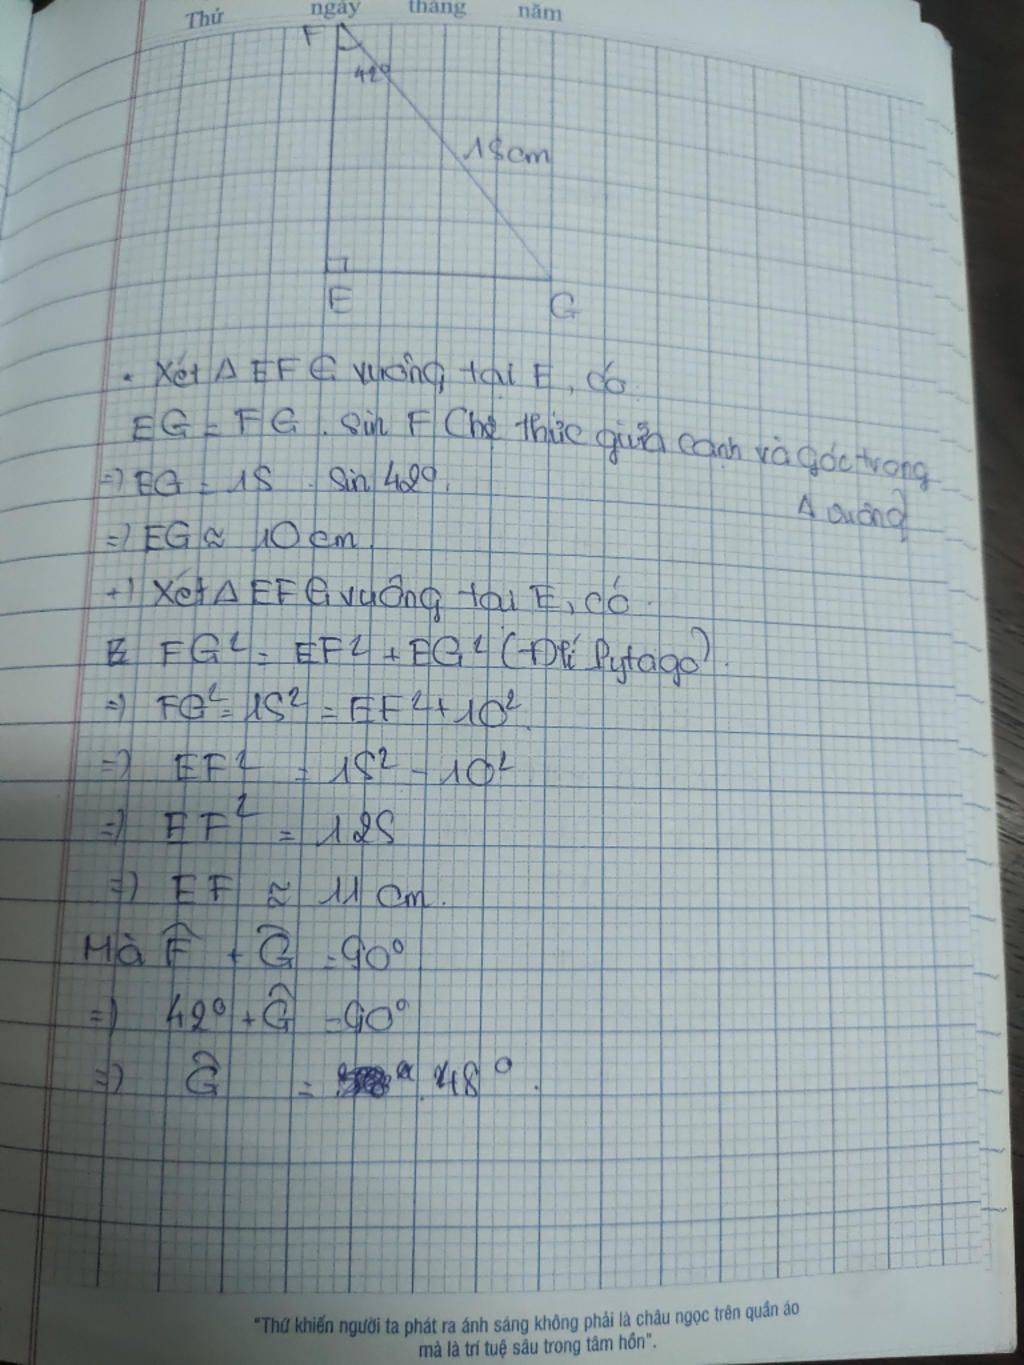 Thứ ngày tháng năm
F
42°
15cm
E G
• Xét Δ EFG vuông tại E, có
EG = FG . sin F (hệ thức giữa cạnh và góc trong
Δ vuông)
=) EG = 15 . sin 42°.
=) EG ≈ 10 cm
+) Xét Δ EFG vuông tại E, có.
FG² = EF² + EG² (Đlí Pytago).
=) FG² = 15² = EF² + 10²
=) EF² = 15² - 10²
=) EF² = 125
=) EF ≈ 11 cm.
Mà F̂ + Ĝ = 90°
=) 42° + Ĝ = 90°
=) Ĝ = 48°.
"Thứ khiến người ta phát ra ánh sáng không phải là châu ngọc trên quần áo
mà là trí tuệ sâu trong tâm hồn".